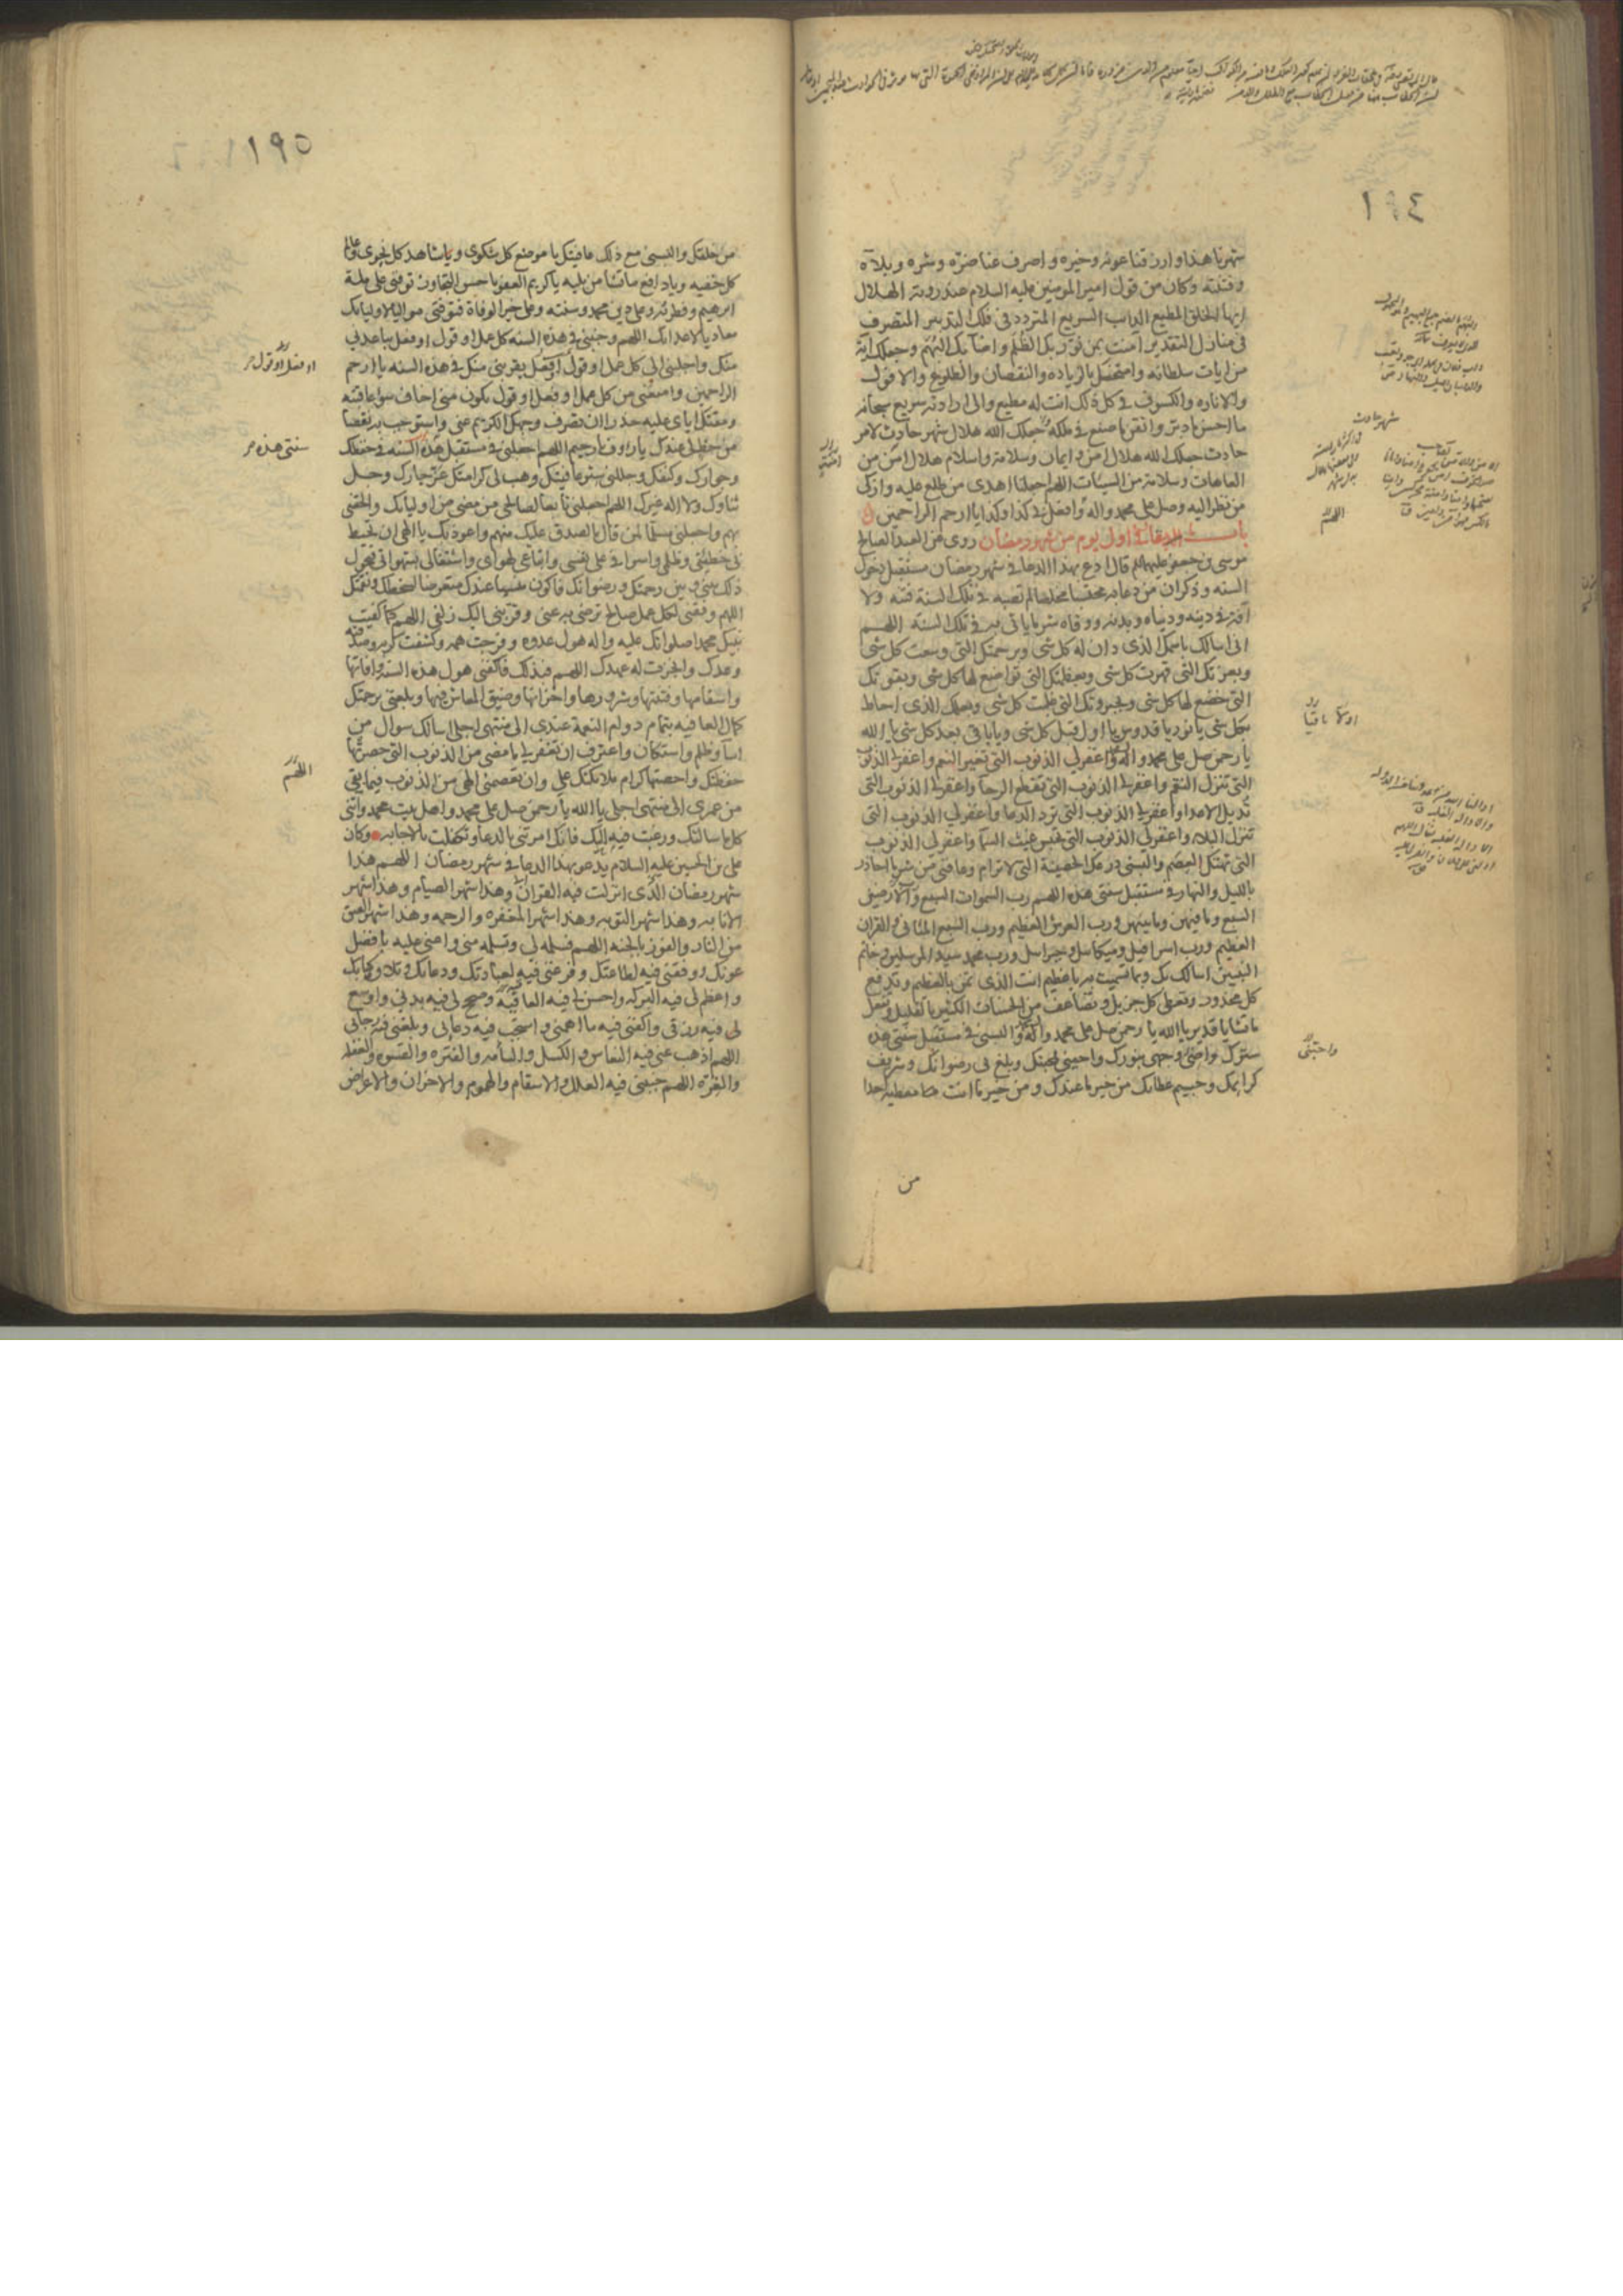 ١٩٤
شهرنا هذا وارزقنا عونه وخيره واصرف عنا ضره وشره وبلآه
وفتنته وكان من قول امير المومنين عليه السلام عند روية الهلال
ايها الخلق المطيع الداب السريع المتردد في فلك التدبير المتصرف
في منازل التقدير امنت بمن نور بك الظلم واضآ بك البهم وجعلك اية
من ايات سلطانه وامتحنك بالزيادة والنقصان والطلوع والافول
والاناره والكسوف في كل ذلك انت له مطيع والى ارادته سريع سبحانه
ما احسن ما دبر واتقن ما صنع في ملكه وجعلك الله هلال شهر حادث لامر
حادث جعلك الله هلال امن وايمان وسلامة واسلام هلال امن من
العاهات وسلامة من السيئات اللهم اجعلنا اهدى من طلع عليه وازكى
من نظر اليه وصل على محمد واله وافعل بي كذا وكذا يا ارحم الراحمين
باب الدعاء في اول يوم من شهر رمضان روى عن العبد الصالح
موسى بن جعفر عليهما قال ادع بهذا الدعا في شهر رمضان مستقبل دخول
السنه وذكر ان من دعا به محتسبا مخلصا لم تصبه في تلك السنة فتنه ولا
آفة في دينه ودنياه وبدنه ووقاه شر ما ياتي به في تلك السنه اللهم
انى اسالك باسمك الذى دان له كل شى وبرحمتك التى وسعت كل شى
وبعزتك التى قهرت كل شى وبعظمتك التى تواضع لها كل شى وبقوتك
التى خضع لها كل شى وبجبروتك التى غلبت كل شى وبعلمك الذى احاط
بكل شى يا نور يا قدوس يا اول قبل كل شى ويا باقى بعد كل شى يا الله
يا رحمن صل على محمد واله واغفر لي الذنوب التى تغير النعم واغفر لي الذنوب
التى تنزل النقم واغفر لي الذنوب التى تقطع الرجا واغفر لي الذنوب التى
تديل الاعدا واغفر لي الذنوب التى ترد الدعا واغفر لي الذنوب التى
تنزل البلاء واغفر لي الذنوب التى تحبس غيث السمآ واغفر لي الذنوب
التى تهتك العصم والبسنى درعك الحصينة التى لا ترام وعافنى من شر ما احاذر
بالليل والنهار في مستقبل سنتى هذه اللهم رب السموات السبع والارضين
السبع وما فيهن وما بينهن ورب العرش العظيم ورب السبع المثاني والقران
العظيم ورب اسرافيل وميكائيل وجبرائيل ورب محمد سيد المرسلين وخاتم
النبيين اسالك بك وبما تسميت به يا عظيم انت الذى تمن بالعظيم وتدفع
كل محذور وتعطى كل جزيل وتضاعف من الحسنات الكثير بالقليل وتفعل
ما تشا يا قدير يا الله يا رحمن صل على محمد واله والبسنى في مستقبل سنتى هذه
سترك واضئ وجهى بنورك واحينى بمحبتك وبلغ بى رضوانك وشريف
كرايمك وجسيم عطائك من خير ما عندك ومن خير ما انت معطيه احدا
من
اللهم
واحبنى
١٩٥
من خلقك والبسنى مع ذلك عافيتك يا موضع كل شكوى ويا شاهد كل نجوى وعالم
كل خفيه ويا دافع ما تشا من بليه يا كريم العفو يا حسن التجاوز توفنى على ملة
ابرهيم وفطرته وعلى دين محمد وسنته وعلى خير الوفاة فتوفنى مواليا لاوليائك
معاديا لاعدائك اللهم وجنبنى في هذه السنه كل عمل او قول او فعل يباعدني
منك واجلبنى الى كل عمل او قول او فعل يقربنى منك في هذه السنه يا ارحم
الراحمين وامنعنى من كل عمل او فعل او قول يكون منى اخاف سوء عاقبته
ومقتك اياى عليه حذرا ان تصرف وجهك الكريم عنى واستوجب به نقصا
من حظ لي عندك يا رؤف يا رحيم اللهم اجعلنى في مستقبل هذه السنه في حفظك
وجوارك وكنفك وجللنى ستر عافيتك وهب لى كرامتك عز جارك وجل
ثناوك ولا اله غيرك اللهم اجعلنى تابعا لصالحى من مضى من اوليائك والحقنى
بهم واجعلنى مسلما لمن قال بالصدق عليك منهم واعوذ بك يا الهى ان تحيط
بى خطيئتى وظلمى واسرافى على نفسى واتباعى لهواى واشتغالى بشهواتى فيحول
ذلك بينى وبين رحمتك ورضوانك فاكون منسيا عندك متعرضا لسخطك ونقمتك
اللهم وفقنى لكل عمل صالح ترضى به عنى وقربنى اليك زلفى اللهم كما كفيت
نبيك محمدا صلواتك عليه واله هول عدوه وفرجت همه وكشفت كربه وصدقته
وعدك وانجزت له عهدك اللهم فبذلك فاكفنى هول هذه السنة وافاتها
واسقامها وفتنتها وشرورها واحزانها وضيق المعاش فيها وبلغنى برحمتك
كمال العافيه بتمام دوام النعمة عندى الى منتهى اجلى اسالك سوال من
اسآ وظلم واستكان واعترف ان تغفر لي ما مضى من الذنوب التى حصرتها
حفظتك واحصتها كرام ملائكتك علي وان تعصمنى الهى من الذنوب فيما بقى
من عمرى الى منتهى اجلى يا الله يا رحمن صل على محمد واهل بيت محمد واتنى
كلما سالتك ورغبت فيه اليك فانك امرتنى بالدعا وتكفلت بالاجابه وكان
على بن الحسين عليه السلام يدعو بهذا الدعا في شهر رمضان اللهم هذا
شهر رمضان الذى انزلت فيه القران وهذا شهر الصيام وهذا شهر
الانابه وهذا شهر التوبه وهذا شهر المغفره والرحمه وهذا شهر العتق
من النار والفوز بالجنه اللهم فسلمه لى وتسلمه منى واعنى عليه بافضل
عونك ووفقنى فيه لطاعتك وفرغنى فيه لعبادتك ودعائك وتلاوة كتابك
واعظم لى فيه البركه واحسن لى فيه العاقبة وصحح لى فيه بدنى واوسع
لى فيه رزقى واكفنى فيه ما اهمنى واستجب فيه دعائى وبلغنى فيه رجائى
اللهم اذهب عنى فيه النعاس والكسل والسأمه والفتره والقسوه والغفله
والغره اللهم جنبنى فيه العلل والاسقام والهموم والاحزان والاعراض
سنتى هذه
اللهم